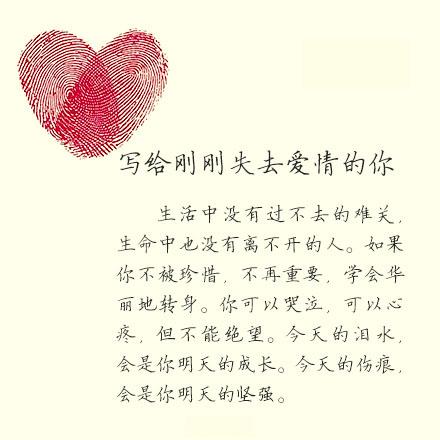 写给刚刚失去爱情的你
生活中没有过不去的难关，
生命中也没有离不开的人。如果
你不被珍惜，不再重要，学会华
丽地转身。你可以哭泣，可以心
疼，但不能绝望。今天的泪水，
会是你明天的成长。今天的伤痕，
会是你明天的坚强。